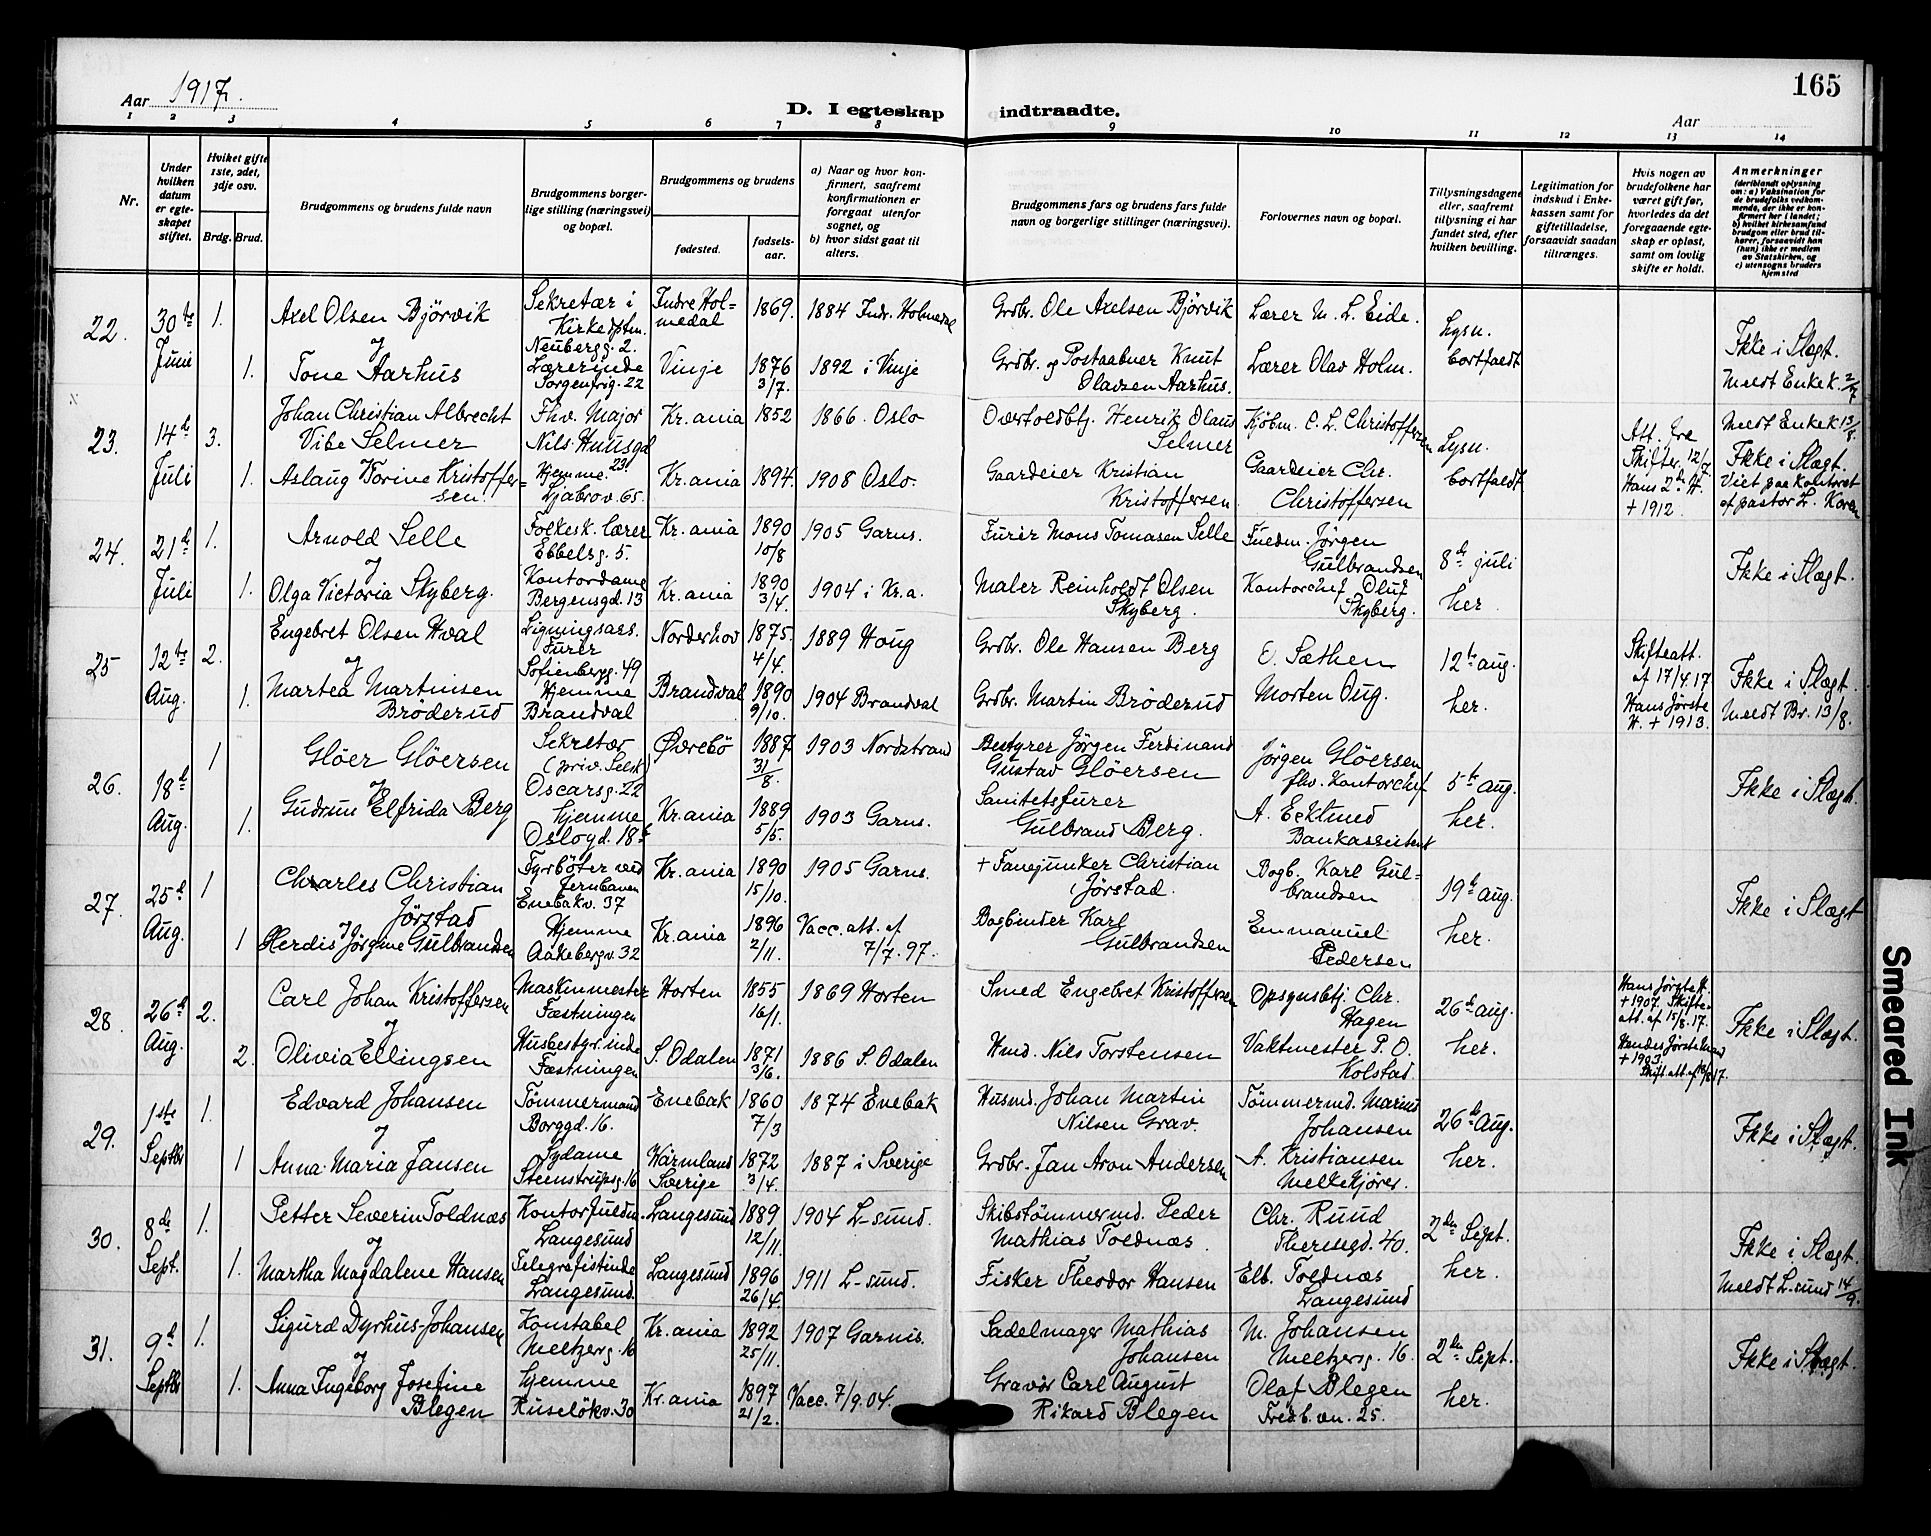 165
Aar 1917.
D. I egteskap indtraadte.
Aar
1 2 3 4 5 6 7 8 9 10 11 12 13 14
Nr.
Under hvilken datum er egteskapet stiftet.
Hviket gifte 1ste, 2det, 3dje osv.
Brdg. Brud.
Brudgommens og brudens fulde navn
Brudgommens borgerlige stilling (næringsvei) og bopæl.
Brudgommens og brudens
fødested. fødselsaar.
a) Naar og hvor konfirmert, saafremt konfirmationen er foregaat utenfor sognet, og
b) hvor sidst gaat til alters.
Brudgommens fars og brudens fars fulde navn og borgerlige stillinger (næringsvei).
Forlovernes navn og bopæl.
Tillysningsdagene eller, saafremt tillysning ei har fundet sted, efter hvilken bevilling.
Legitimation for indskud i Enkekassen samt for giftetilladelse, forsaavidt saadan tiltrænges.
Hvis nogen av brudefolkene har været gift før, hvorledes da det foregaaende egteskap er opløst, samt om lovlig skifte er holdt.
Anmerkninger (deriblandt oplysning om: a) Vaksination for de brudefolks vedkommende, der ikke er konfirmert her i landet; b) hvilket kirkesamfund brudgom eller brud tilhører, forsaavidt han (hun) ikke er medlem av Statskirken, og c) utensogns bruders hjemsted
22. 30te Juni
1. Axel Olsen Bjørvik
Sekretær i Kirkedptm. Neubergg. 2.
Indre Holmedal 1869. 1884 Indr. Holmedal
Grdbr. Ole Axelsen Bjørvik
Lærer M. L. Eide.
Lysn. bortfaldt
Ikke i Slægt.
Meldt Enkek. 2/7
og
1. Tone Aarhus
Lærerinde Sorgenfrig. 22
Vinje 1876 3/7. 1892 i Vinje
Grdbr. og Postaabner Knut Olavsen Aarhus.
Lærer Olav Holm.
23. 14d Juli
3. Johan Christian Albrecht Vibe Selmer
Fhv. Major Nils Huusgd. 23.
Kr.ania 1852 1866 Oslo
Overtoldbtj. Henrik Olaus Selmer
Kjøbm. C. L. Christoffersen
Lysn. bortfaldt
Att. fra Skifter. 12/7. Hans 2den H. + 1912.
Meldt Enkek 13/8.
Ikke i Slægt.
Viet paa kontoret af pastor L. Koren
1. Aslaug Torine Kristoffersen.
Hjemme. Ljabrov. 65.
Kr.ania 1894. 1908 Oslo.
Gaardeier Kristian Kristoffersen
Gaardeier Chr. Christoffersen
24. 21d Juli
1. Arnold Selle
Folkesk. lærer Ebbelsg. 5.
Kr.ania 1890 10/8 1905 Garns.
Furer Mons Tomasen Selle
Fuldm. Jørgen Gulbrandsen
8de juli her
Ikke i Slægt.
og
1. Olga Victoria Skyberg.
Kontordame Bergensgd. 13
Kr.ania 1890 3/4. 1904 i Kr.a.
Maler Reinholdt Olsen Skyberg.
Kontorchef Oluf Skyberg.
25 12te Aug.
2. Engebret Olsen Hval
Ligningsass. Furer Sofienbergg. 49
Norderhov 1875. 4/4. 1889 Houg
Grdbr. Ole Hansen Berg
O. Sæthen
12te aug. her.
Skifteatt. af 17/4.17. Hans første H. + 1913.
Ikke i Slægt.
Meldt Br. 13/8.
og
1. Martea Martinsen Brøderud
Hjemme Brandval
Brandval 1890 9/10. 1904 Brandval
Grdbr. Martin Brøderud
Morten Oug.
26. 18d Aug.
1 Gløer Gløersen
Sekretær (priv. Selsk) Oscarsg. 22
Øvrebø 1887 31/8. 1903 Nordstrand
Bestyrer Jørgen Ferdinand Gustav Gløersen
Jørgen Gløersen fhv. Kontorchef
5te aug. her.
Ikke i Slægt.
og
1. Gudrun Elfrida Berg
Hjemme Oslogd. 18
Kr.ania 1889 5/5. 1903 Garns.
Sanitetsfurer Gulbrand Berg.
A. Ecklund Bankassistent
27. 25d Aug.
1 Charles Christian Jørstad
Fyrbøter ved Jernbanen Enebakv. 37
Kr.ania 1890 15/10. 1905 Garns.
+ Fanejunker Christian Jørstad.
Bogb. Karl Gulbrandsen
19de aug. her.
Ikke i Slægt
og
1 Herdis Jørgine Gulbrandsen
Hjemme Aakebergv. 32
Kr.ania 1896 2/11. Vacc. att. af 7/7. 97.
Bogbinder Karl Gulbrandsen
Emmanuel Pedersen
28. 26d Aug.
2. Carl Johan Kristoffersen
Maskinmester Fæstningen
Horten 1855 16/1. 1869 Horten
Smed Engebret Kristoffersen
Opsynsbtj. Chr. Hagen
26de aug. her.
Hans første H. + 1907. Skifteatt. af 15/8.17.
Hendes første Mand + 1903. Skift. att. af 13/8 17.
Ikke i Slægt.
og
2. Olivia Ellingsen
Husbestyr.inde Fæstningen
S. Odalen 1871 3/6. 1886 S. Odalen
Hmd. Nils Torstensen
Vaktmester P. O. Kolstad
29. 1ste Septbr
1. Edvard Johansen
Tømmermand Borggd. 16.
Enebak 1860 7/3 1874 Enebak
Husmd. Johan Martin Nilsen Grav.
Tømmermd. Marius Johansen
26de Aug. her.
Ikke i Slægt.
og
1 Anna Maria Jansen
Sydame Steenstrupsg. 16
Wärmland Sverige 1872 3/4. 1887 i Sverige
Grdbr. Jan Aron Andersen
A. Kristiansen Melkekjører.
30. 8de Sept.
1. Petter Severin Toldnæs
Kontorfuldm. Langesund
Langesund 1889 12/11. 1904 L-sund.
Skibstømmermd. Peder Mathias Toldnæs.
Chr. Ruud Theresegd. 40.
2den Sept. her.
Ikke i Slægt.
Meldt L.sund 14/9.
og
1. Martha Magdalene Hansen
Telegrafistinde Langesund.
Langesund 1896 26/4. 1911 L-sund.
Fisker Theodor Hansen
Elb. Toldnæs Langesund
31. 9d Septbr
1. Sigurd Dyrhus-Johansen
Konstabel Meltzersg. 16
Kr.ania 1892 25/11. 1907 Garnis.
Sadelmager Mathias Johansen
M. Johansen Meltzersg. 16.
2den Sept. her.
Ikke i Slægt.
og
1. Anna Ingeborg Josefine Blegen
Hjemme Ruseløkv. 30
Kr.ania 1897 21/2. Vacc. 7/9. 04.
Gravør Carl August Rikard Blegen
Olaf Blegen Fredb.vn. 25.
Smeared Ink